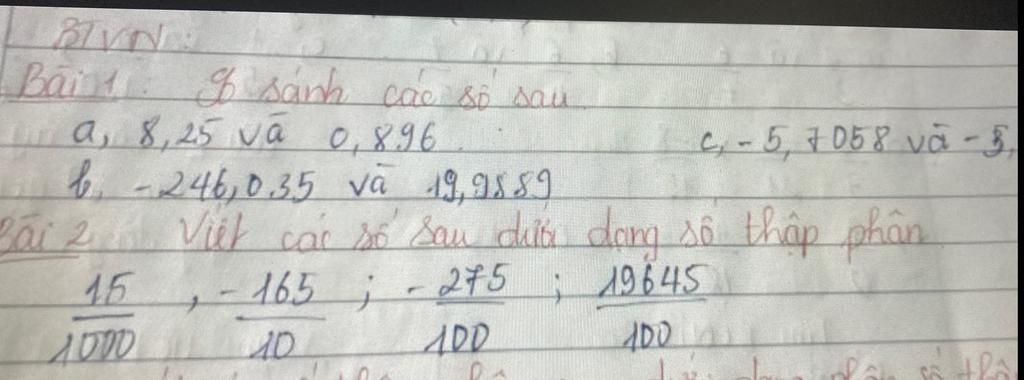 BTVN:
Bài 1: So sánh các số sau
a, 8,25 và 0,896. c, -5,7058 và -5,
b, -246,035 và 19,9889
Bài 2 Viết các số sau dưới dạng số thập phân
15/1000 , -165/10 ; -275/100 ; 19645/100